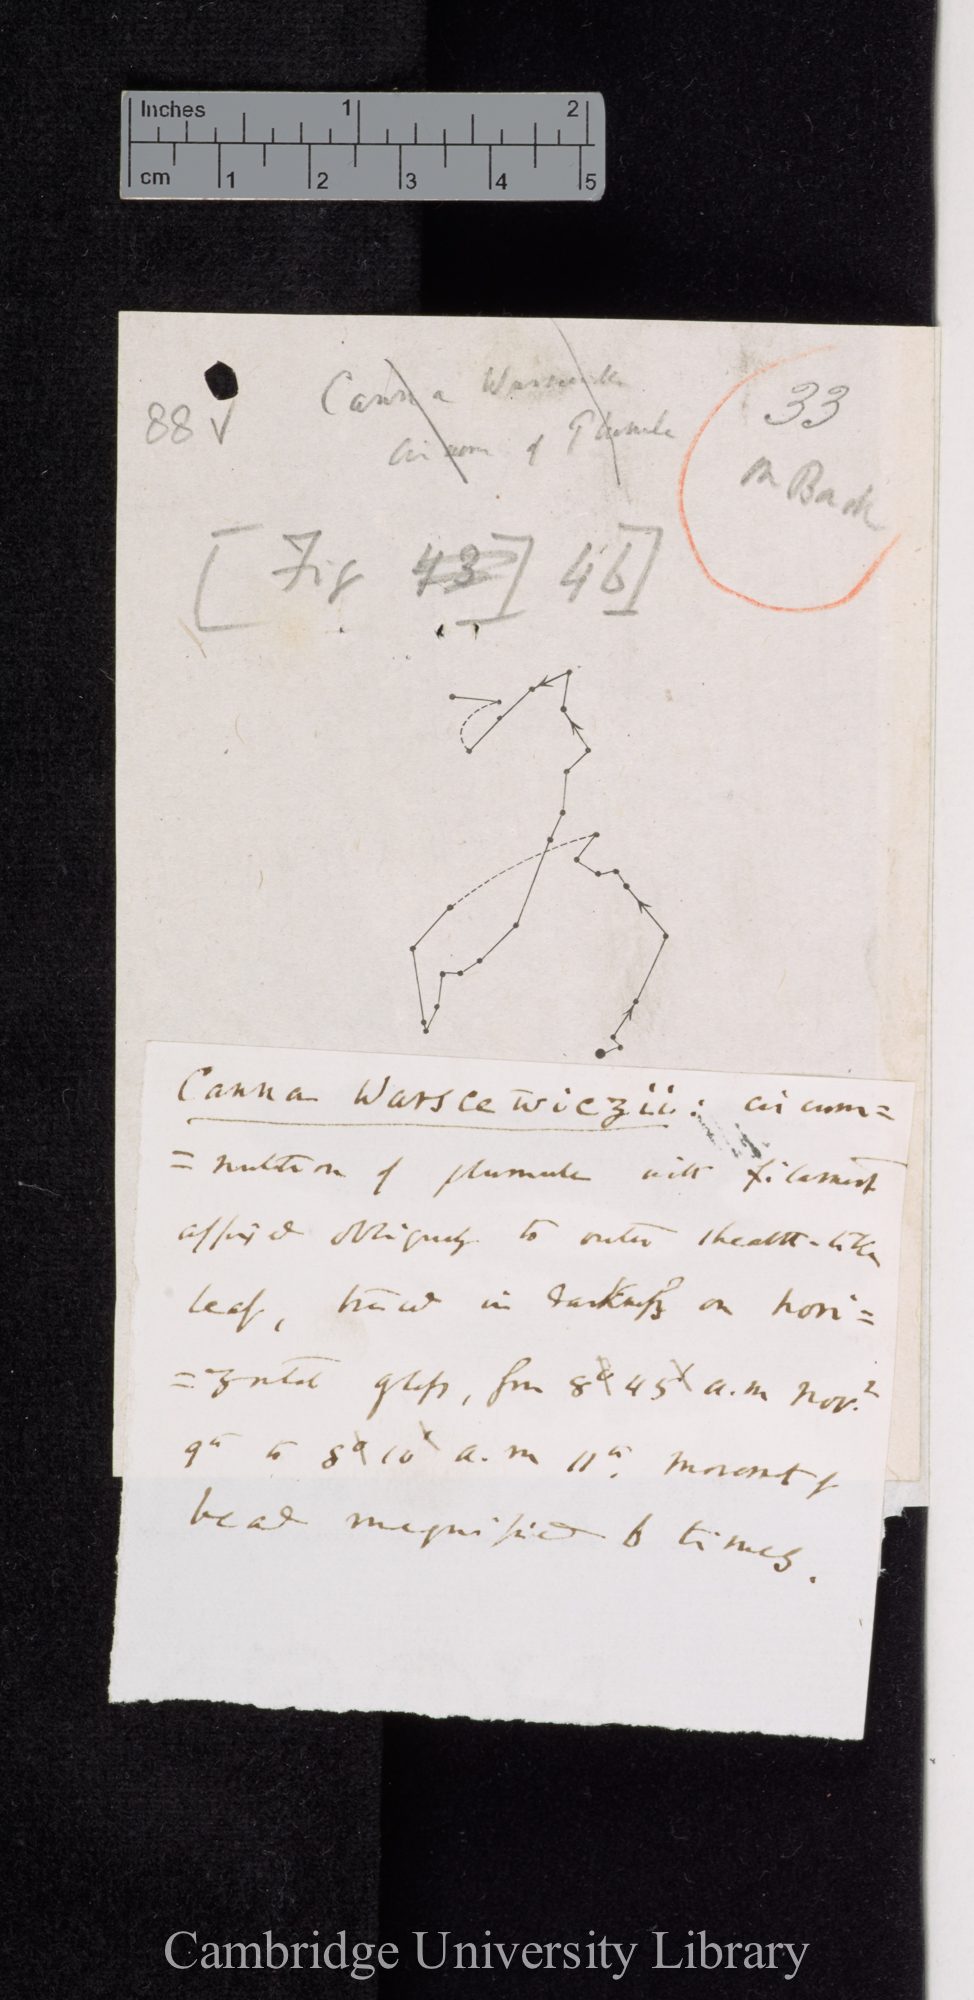 Inches 1 2
cm 1 2 3 4 5
88 √
Canna Warscewicz
circum of Plumule
33
on Back
[Fig 43] 46]
Canna Warscewiczii: circum=
=nutation of plumule with filament
affixed obliquely to outer sheath-like
leaf, traced in darkness on hori=
=zontal glass, from 8° 45' a.m Nov.r
9th to 8° 10' a.m 11th. Movement of
bead magnified 6 times.
Cambridge University Library